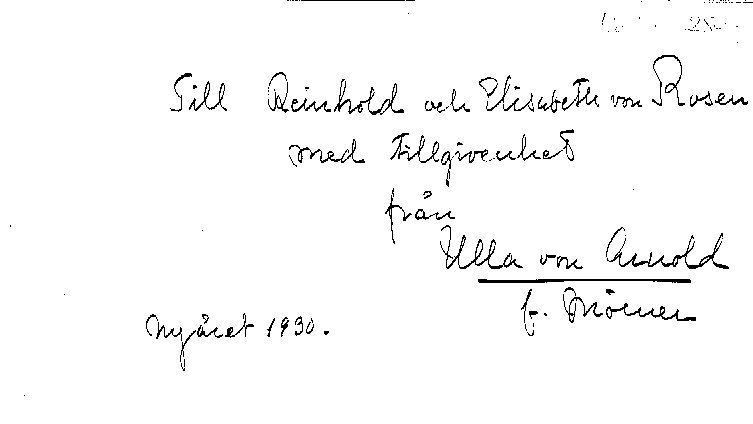 Till Reinhold och Elisabeth von Rosen
med tillgivenhet
från
Ulla von Arnold
f. Mörner
Nyåret 1930.